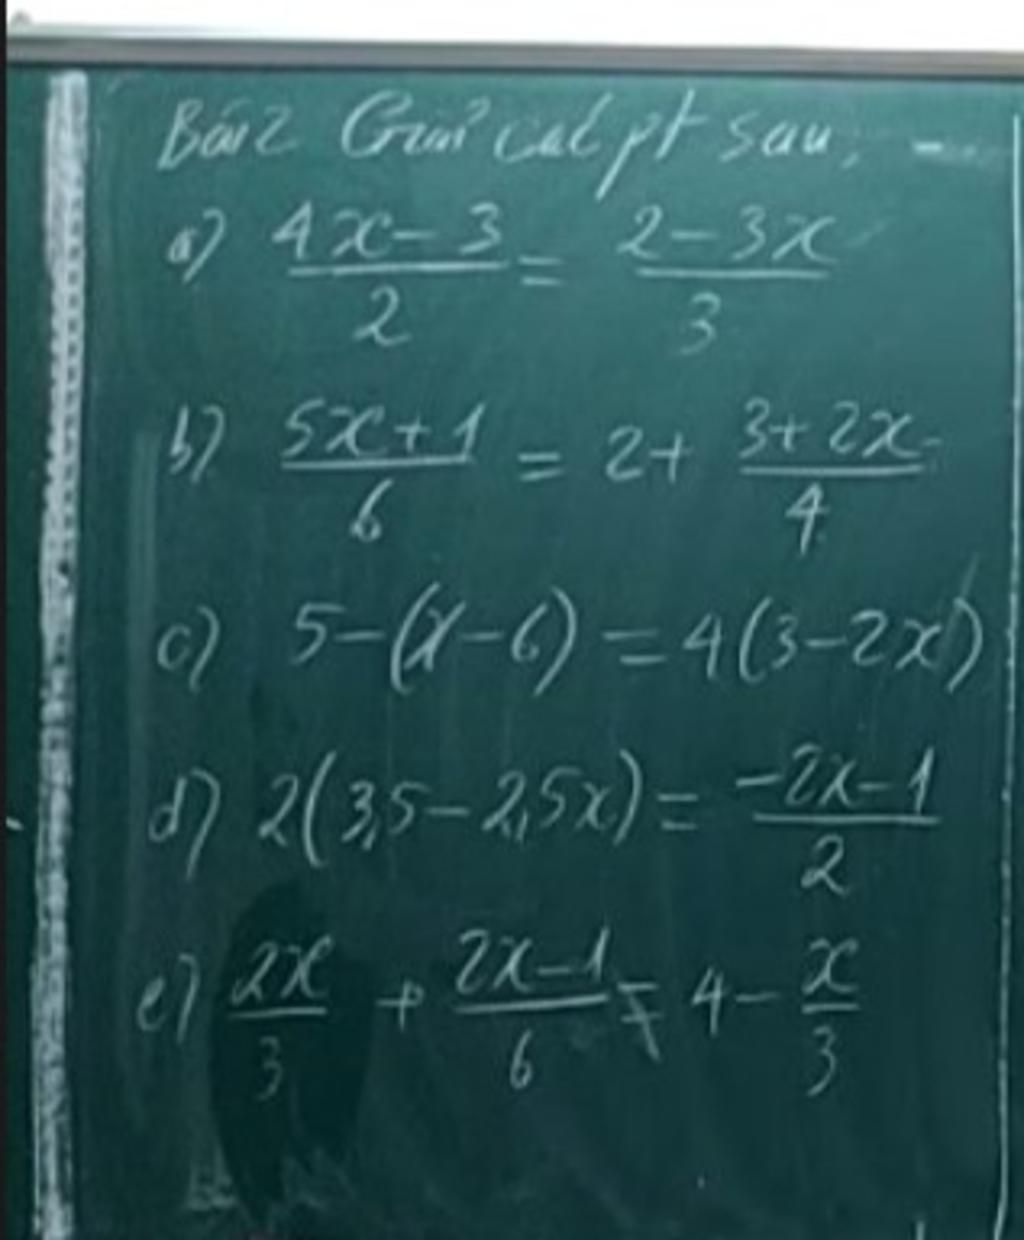 Bài 2 Giải các pt sau:
a) (4x-3)/2 = (2-3x)/3
b) (5x+1)/6 = 2+ (3+2x)/4
c) 5-(x-6) = 4(3-2x)
d) 2(3,5-2,5x) = (-2x-1)/2
e) 2x/3 + (2x-1)/6 = 4- x/3